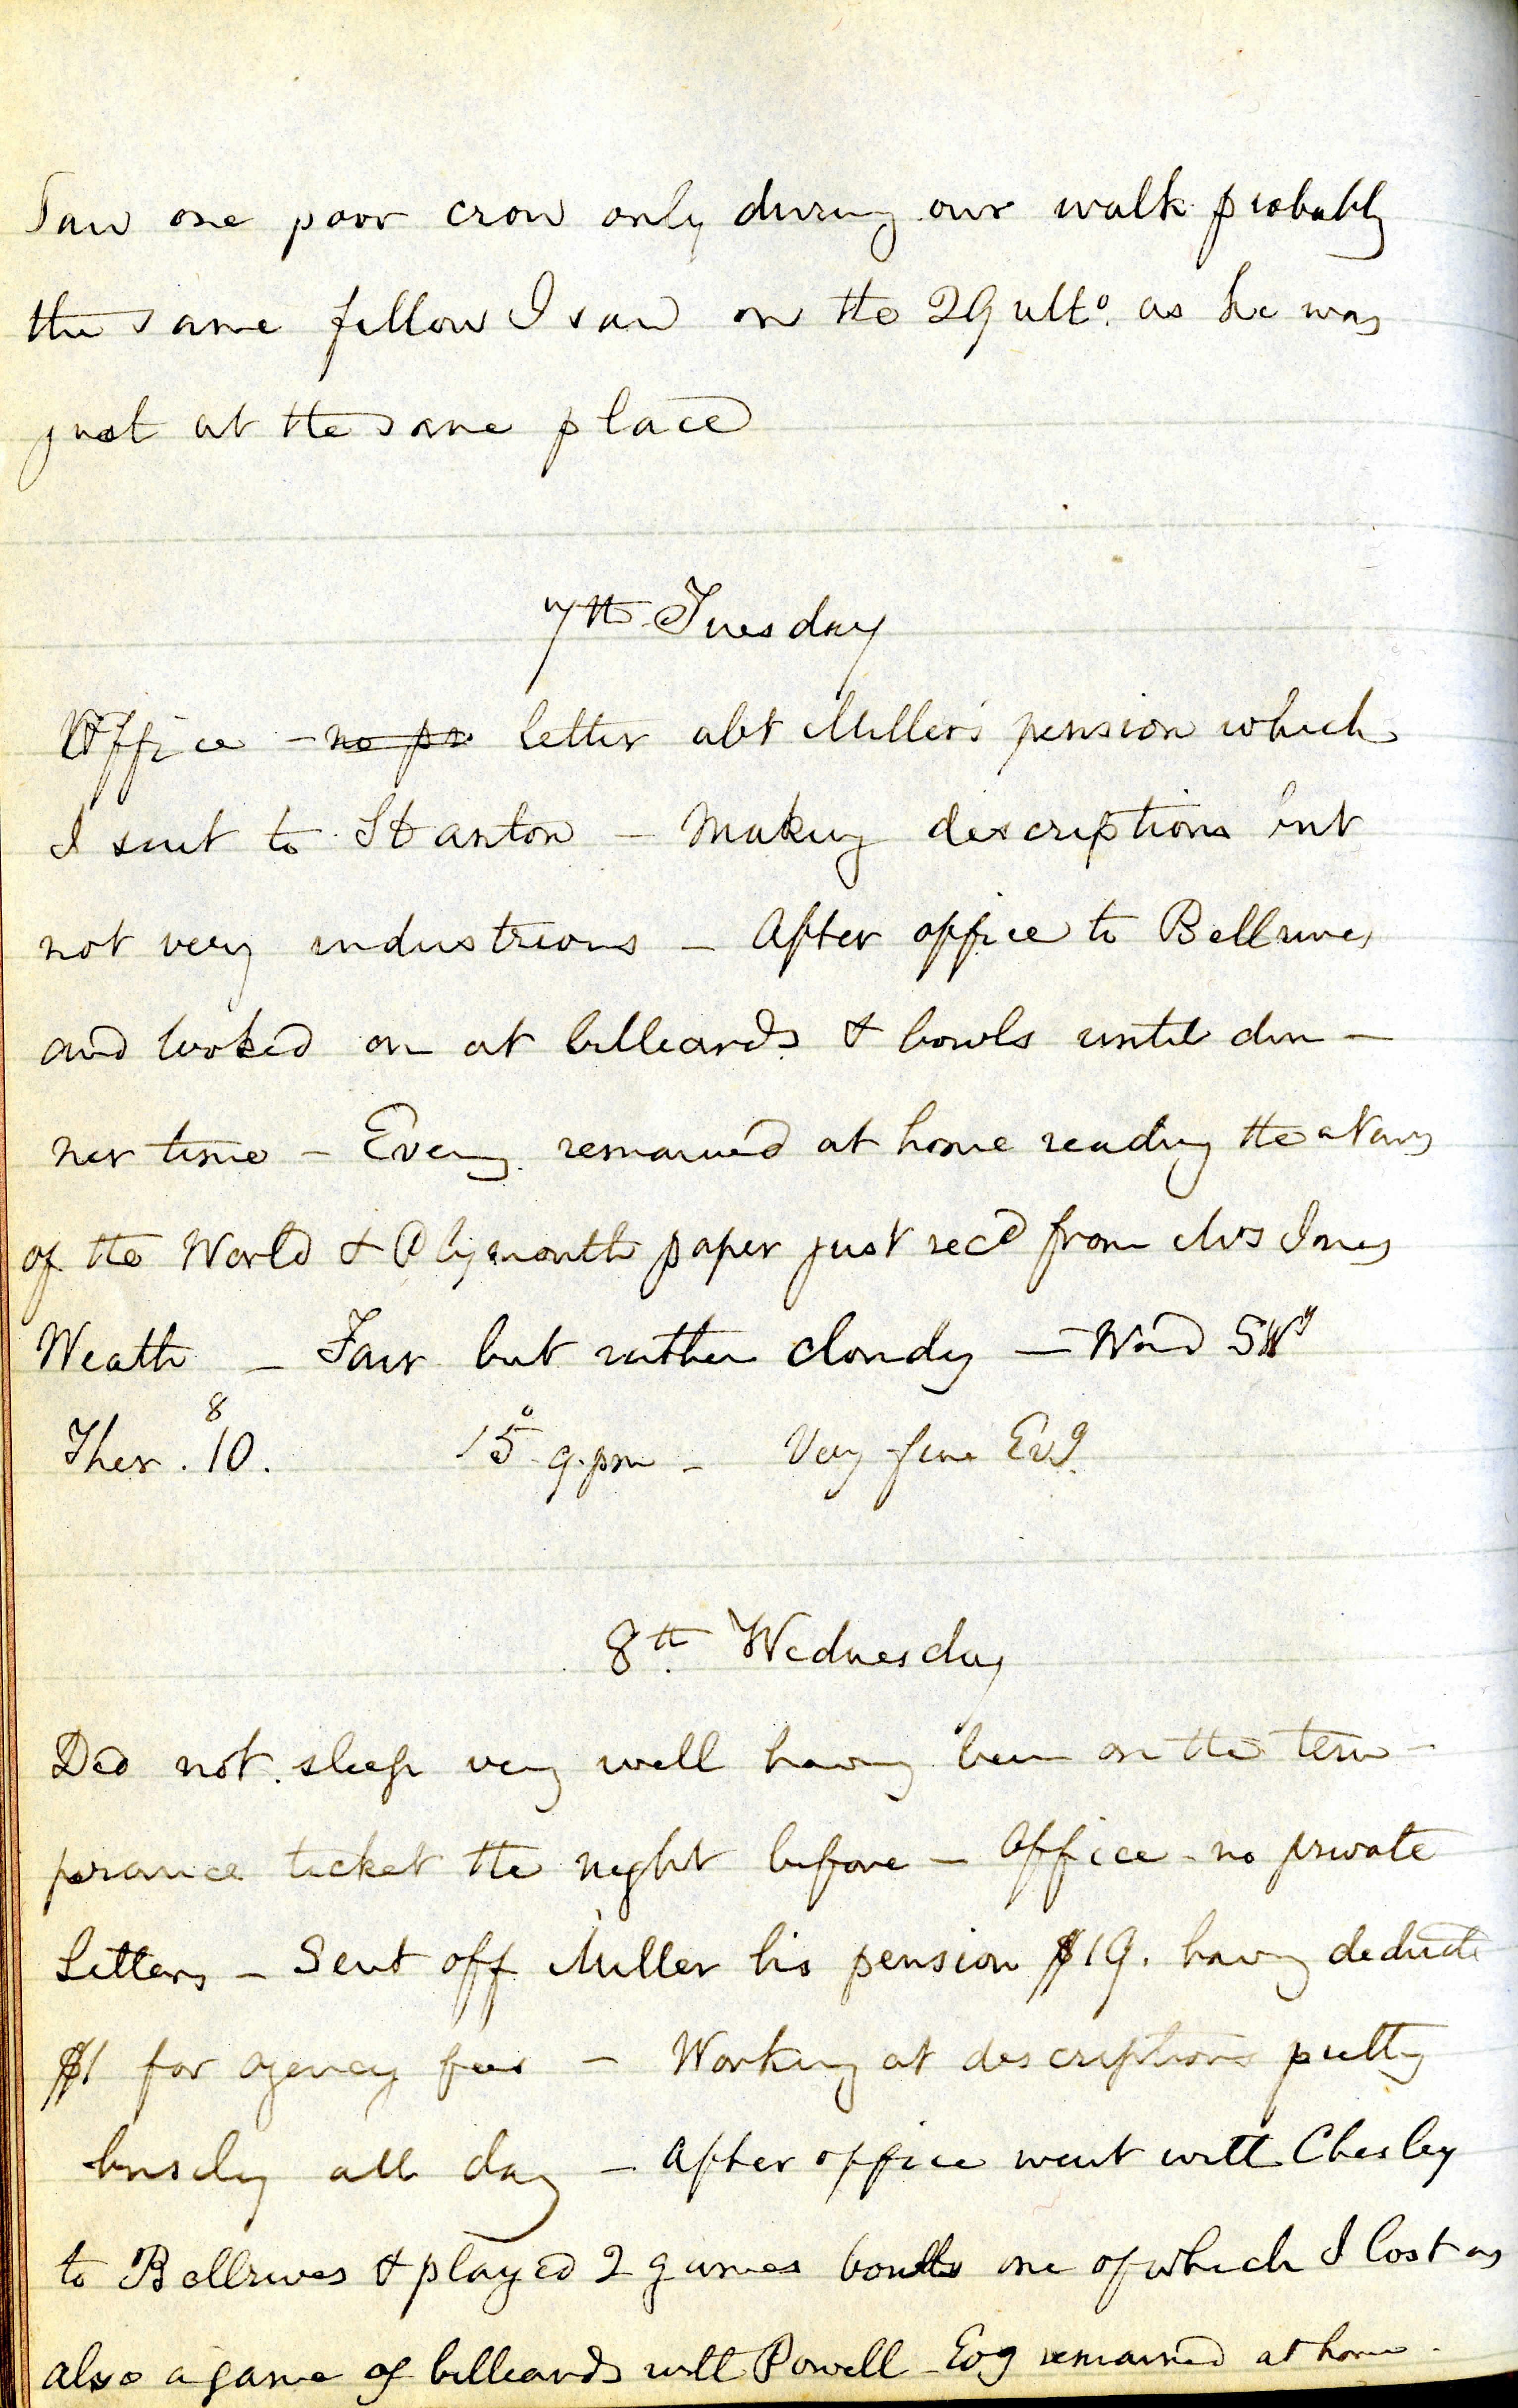 Saw one poor crow only during our walk probably
the same fellow I saw on the 29 ulto. as he was
just at the same place
7th Tuesday
Office - no pr letter abt Miller's pension which
I sent to Stanton - Making descriptions but
not very industrious - After office to Bellrives
and looked on at billiards & bowls until din-
ner time - Eveng. remained at home reading the News
of the World & Plymouth paper just recd from Mrs Innes
Weath - Fair but rather cloudy - Wind SWy
Ther. 8 10. 15° 9.pm - Very fine Evg.
8th. Wednesday
Did not sleep very well having been on the tem-
perance ticket the night before - Office - no private
Letters - Sent off Miller his pension $19. having deducted
$1 for agency fees - Working at descriptions pretty
busily all day - After office went with Chesley
to Bellrives & played 2 games bowls one of which I lost as
also a game of billiards with Powell - Evg remained at home -